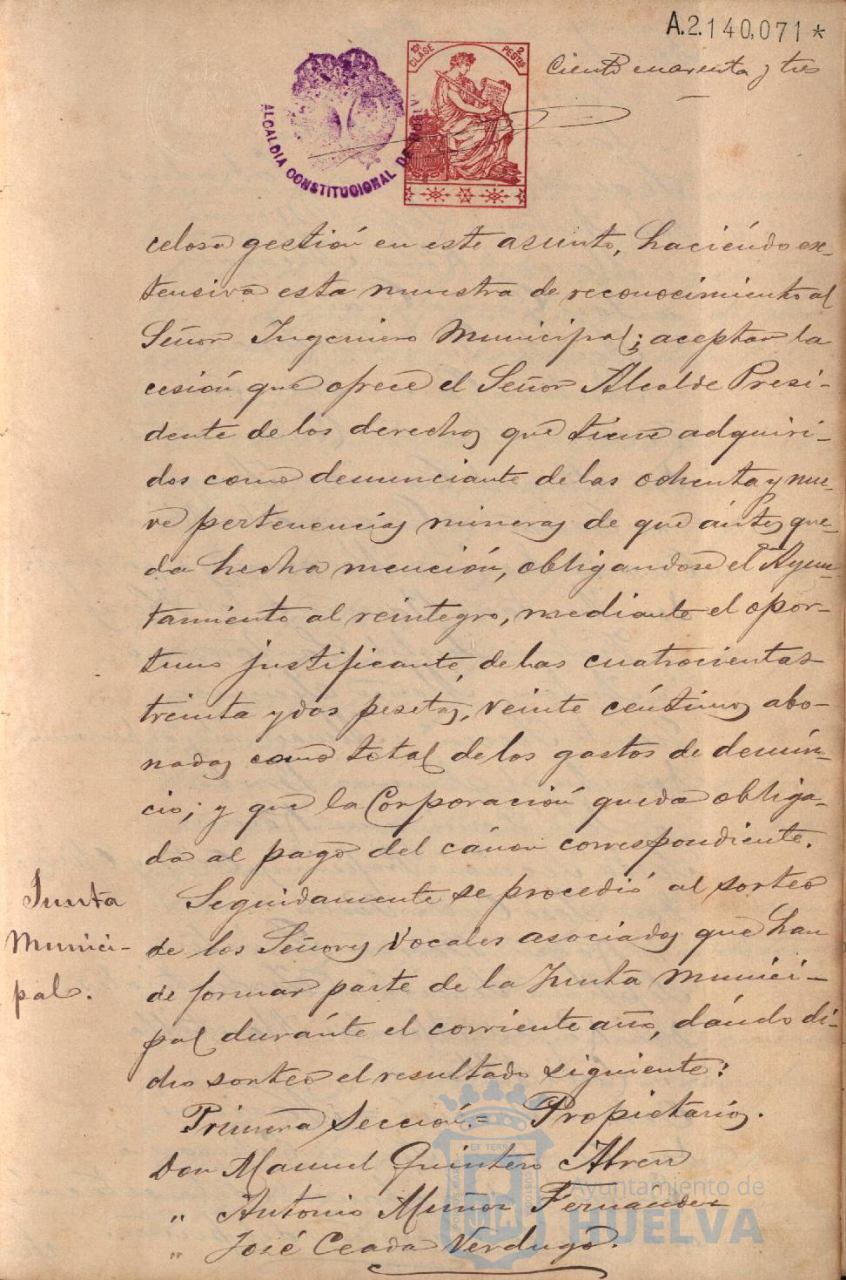 A.2.140,071*
10ª CLASE 2 PESTAS
Ciento cuarenta y tres
ALCALDIA CONSTITUCIONAL DE HUELVA
celosa gestión en este asunto, haciéndo ex-
tensiva esta muestra de reconocimiento al
Señor Ingeniero Municipal; aceptar la
cesión que ofrece el Señor Alcalde Presi-
dente de los derechos que tiene adquiri-
dos como denunciante de las ochenta y nue-
ve pertenencias mineras de que ántes que-
da hecha mención, obligandose el Ayun-
tamiento al reintegro, mediante el opor-
tuno justificante, de las cuatrocientas
treinta y dos pesetas, veinte céntimos abo-
nadas como total de los gastos de denún-
cio; y que la Corporación queda obliga-
da al pago del cánon correspondiente.
Junta
Munici-
pal.
Seguidamente se procedió al sorteo
de los Señores Vocales asociados que han
de formar parte de la Junta munici-
pal duránte el corriente año, dándo di-
cho sorteo el resultado siguiente:
Primera Seccion.= Propietarios.
Don Manuel Quintero Abreu
" Antonio Muñoz Fernández
" José Ceada Verdugo.
Ayuntamiento de
HUELVA